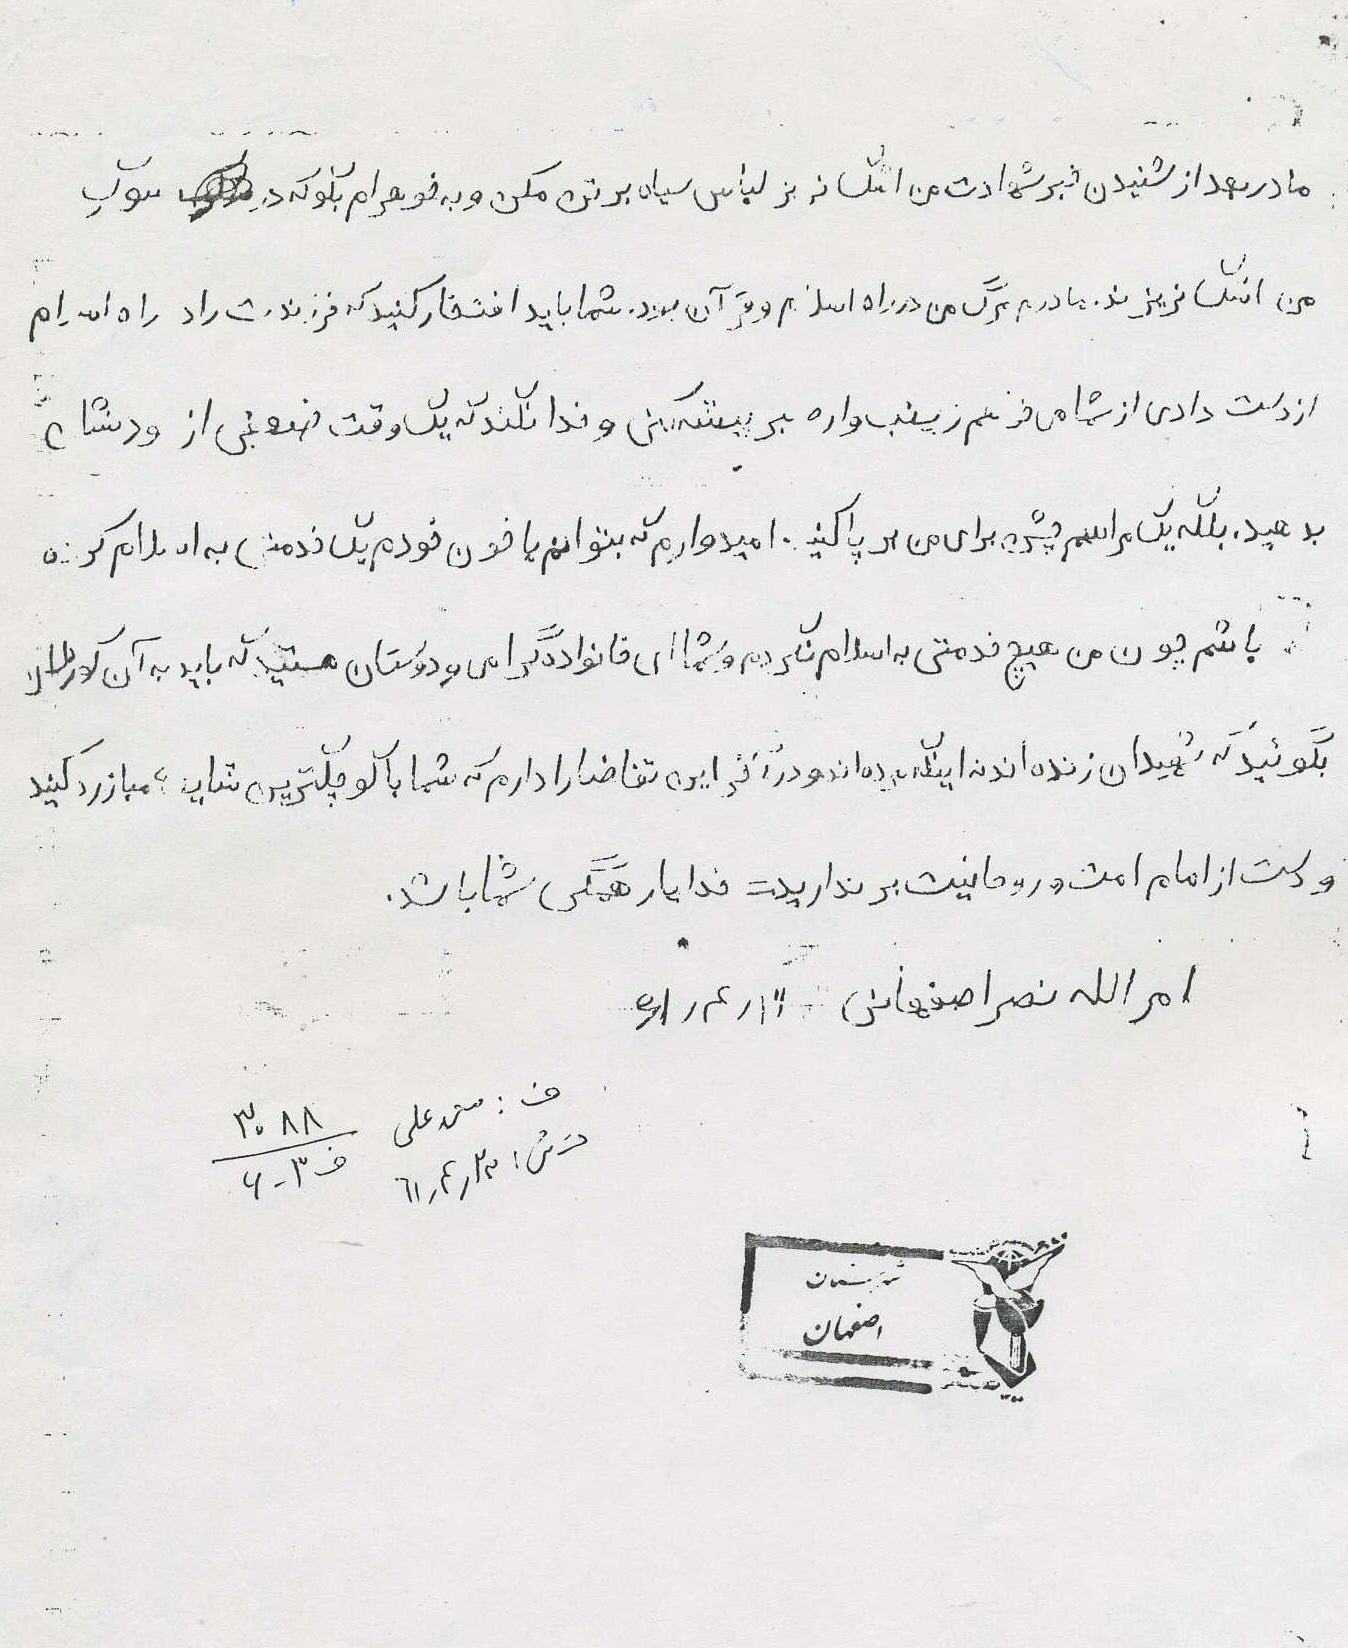 مادر بعد از شنیدن خبر شهادت من اشک نریز لباس سیاه بر تن مکن و به خواهرام بگو که در سوگ
من اشک نریزند. مادرم مرگ من در راه اسلام و قرآن بود. شما باید افتخار کنید که فرزندت را در راه اسلام
از دست دادی از شما می‌خواهم زینب‌واره صبر پیشه کنی و خدا نکند که یک وقت ضعفی از خود نشان
بدهید. بلکه یک مراسم جشن برای من بر پا کنید. امیدوارم که بتوانم با خون خودم یک خدمتی به اسلام کرده
باشم چون من هیچ خدمتی به اسلام نکردم و شما ای خانواده گرامی و دوستان هستید که باید به آن کوردلان
بگوئید که شهیدان زنده‌اند نه اینکه مرده‌اند و در آخر این تقاضا را دارم که شما با کوچکترین مبارزه کنید
و دست از امام امت و روحانیت بر ندارید خدا یار همگی شما باشد.
امرالله نصر اصفهانی ۶۱
ف : علی
ش : ۶۱٫۴٫۲۳
۳۰۸۸
ف ۳ - ۶
شهرستان
اصفهان